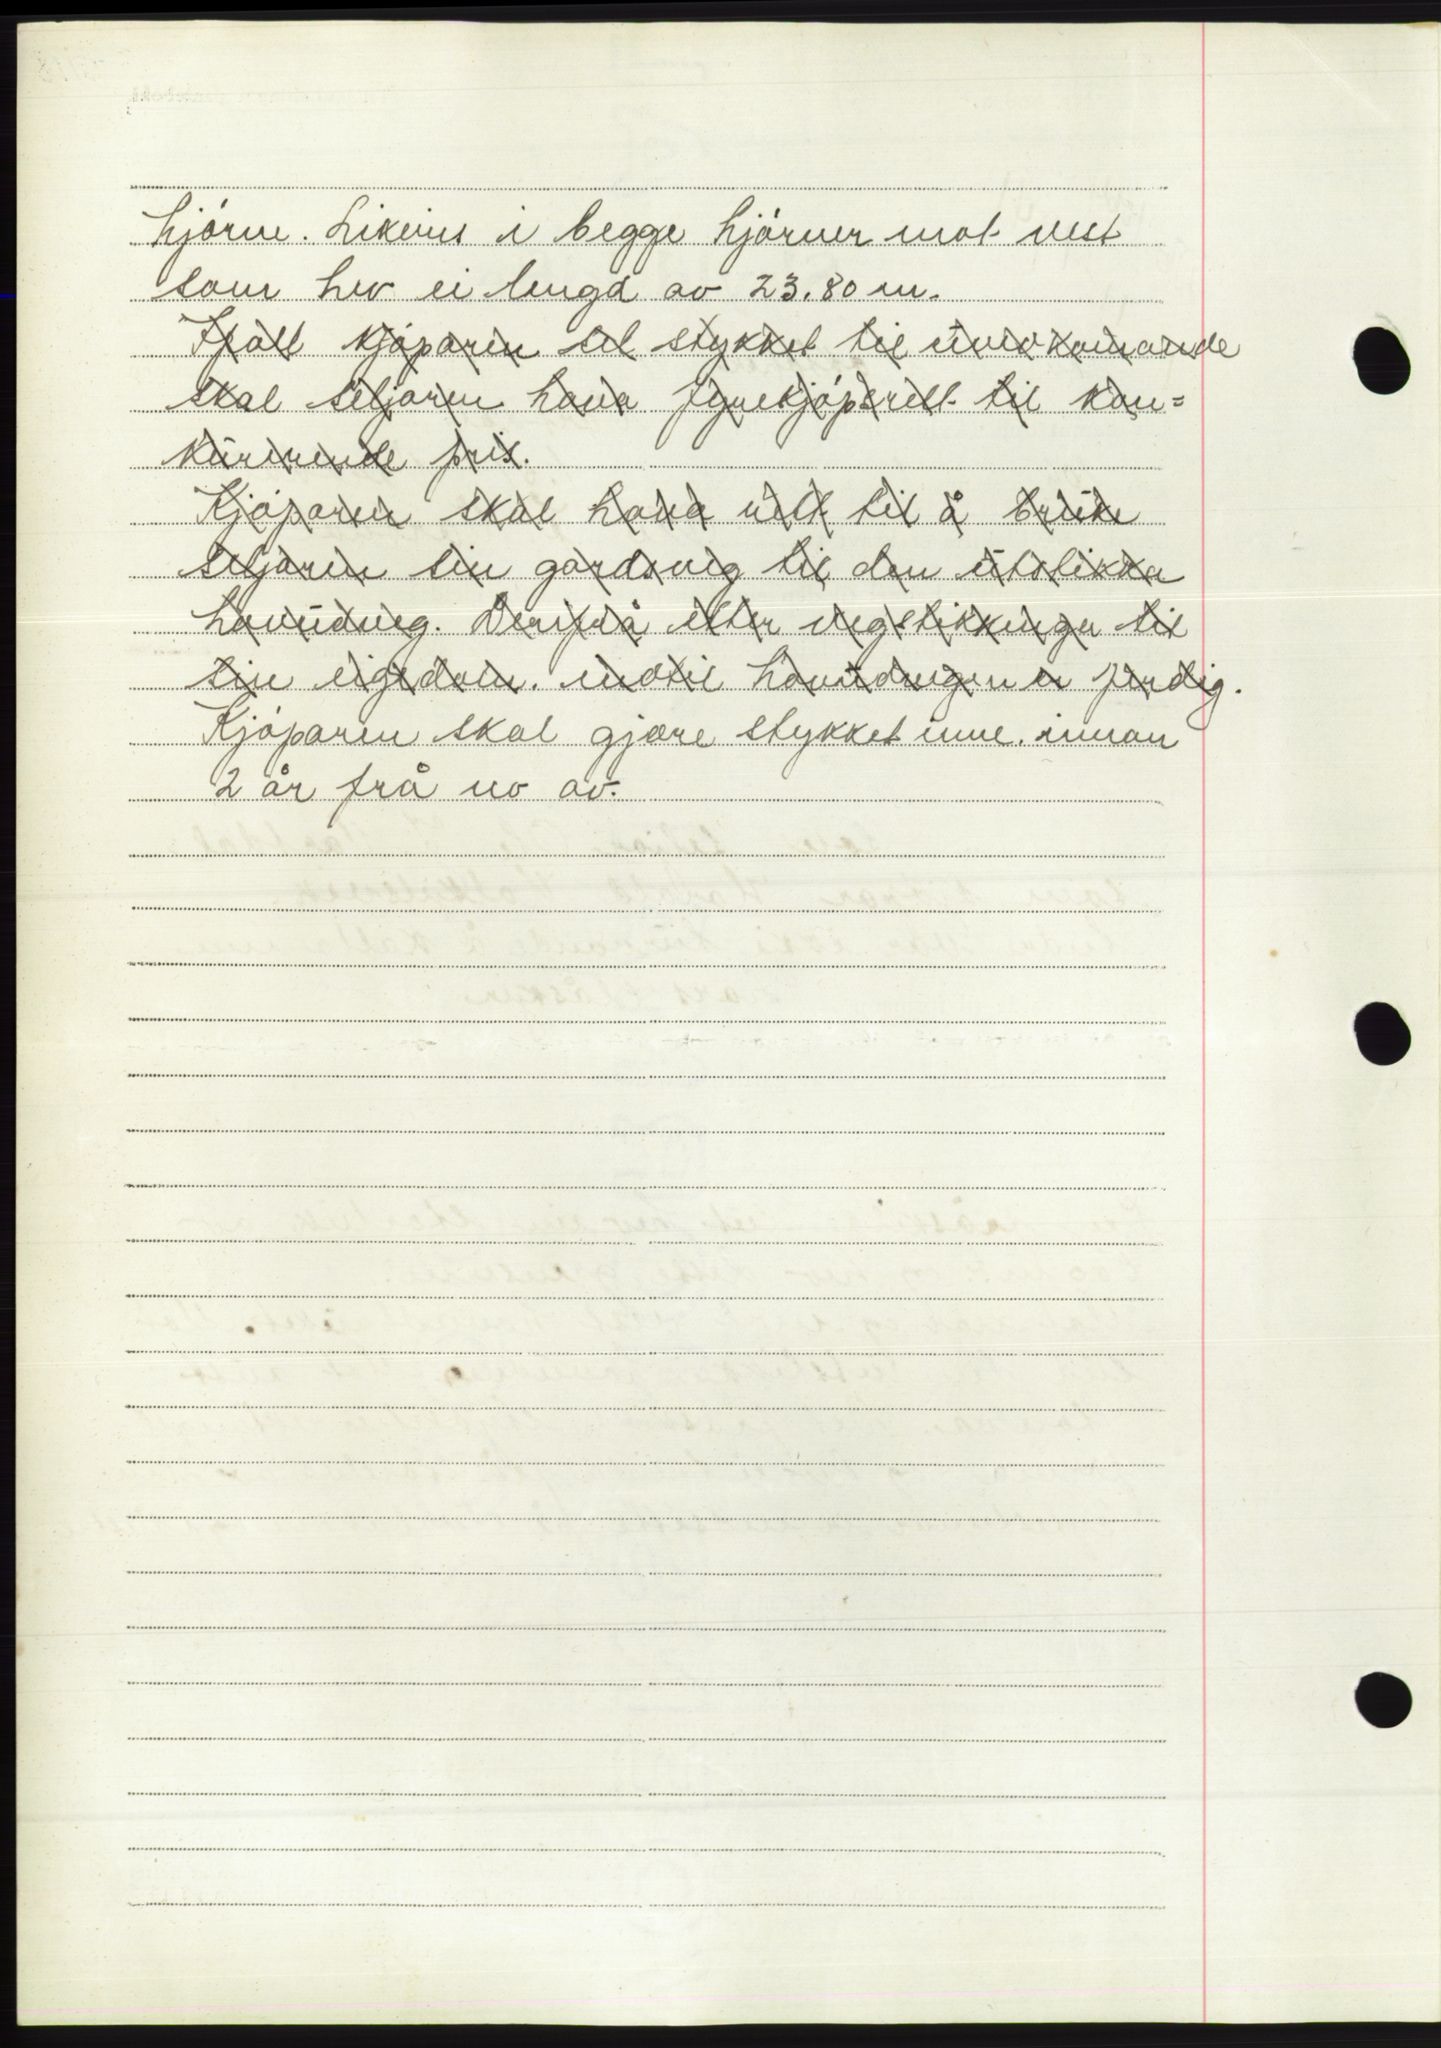 hjörne. Likeins i begge hjörner mot vest
som hev ei lengd av 23.80 m.
Ifall kjöparen sel stykket til uvedkomande
skal seljaren hava fyrekjöpsrett til kon=
kürerende pris.
Kjöparen skal hava rett til å brüke
seljaren sin gardsveg til den ütstikka
hovüdveg. Derifrå etter vegstikkinga til
sin eigedom. inotil hovüdvegen er ferdig.
Kjöparen skal gjære stykket inne. innan
2 år frå no av.